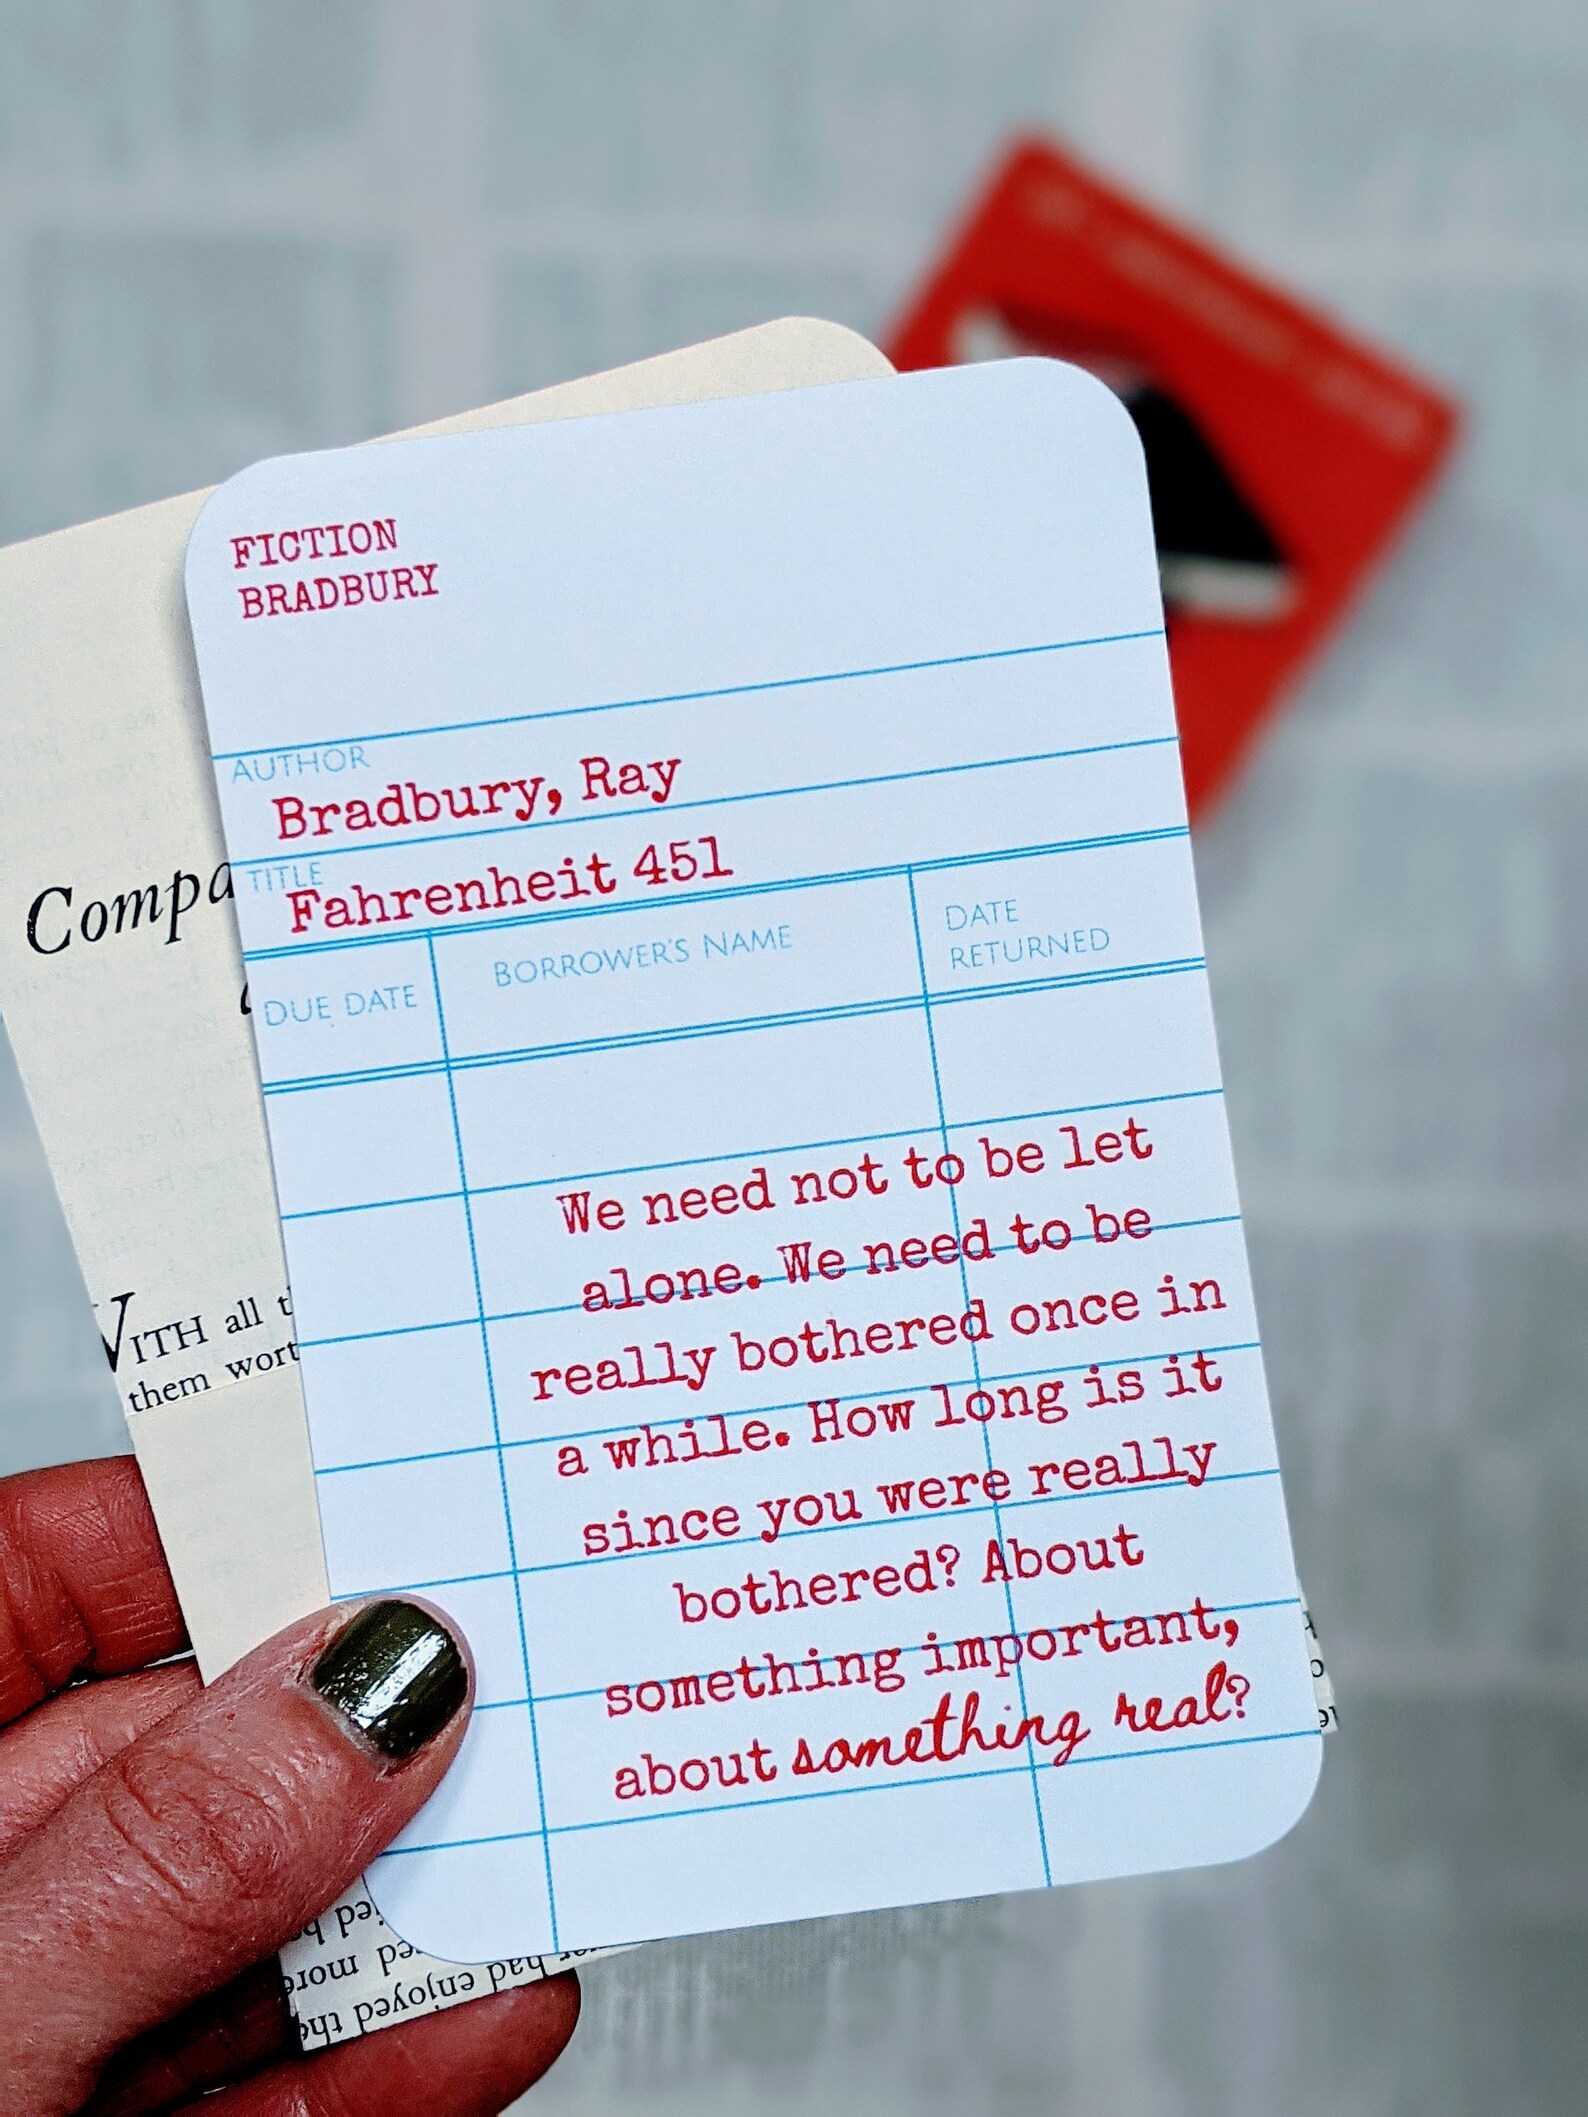 FICTION
BRADBURY
AUTHOR
Bradbury, Ray
TITLE
Fahrenheit 451
DUE DATE
BORROWER'S NAME
DATE
RETURNED
We need not to be let
alone. We need to be
really bothered once in
a while. How long is it
since you were really
bothered? About
something important,
about something real?
Compa
WITH all t
them wort
had enjoyed the
more